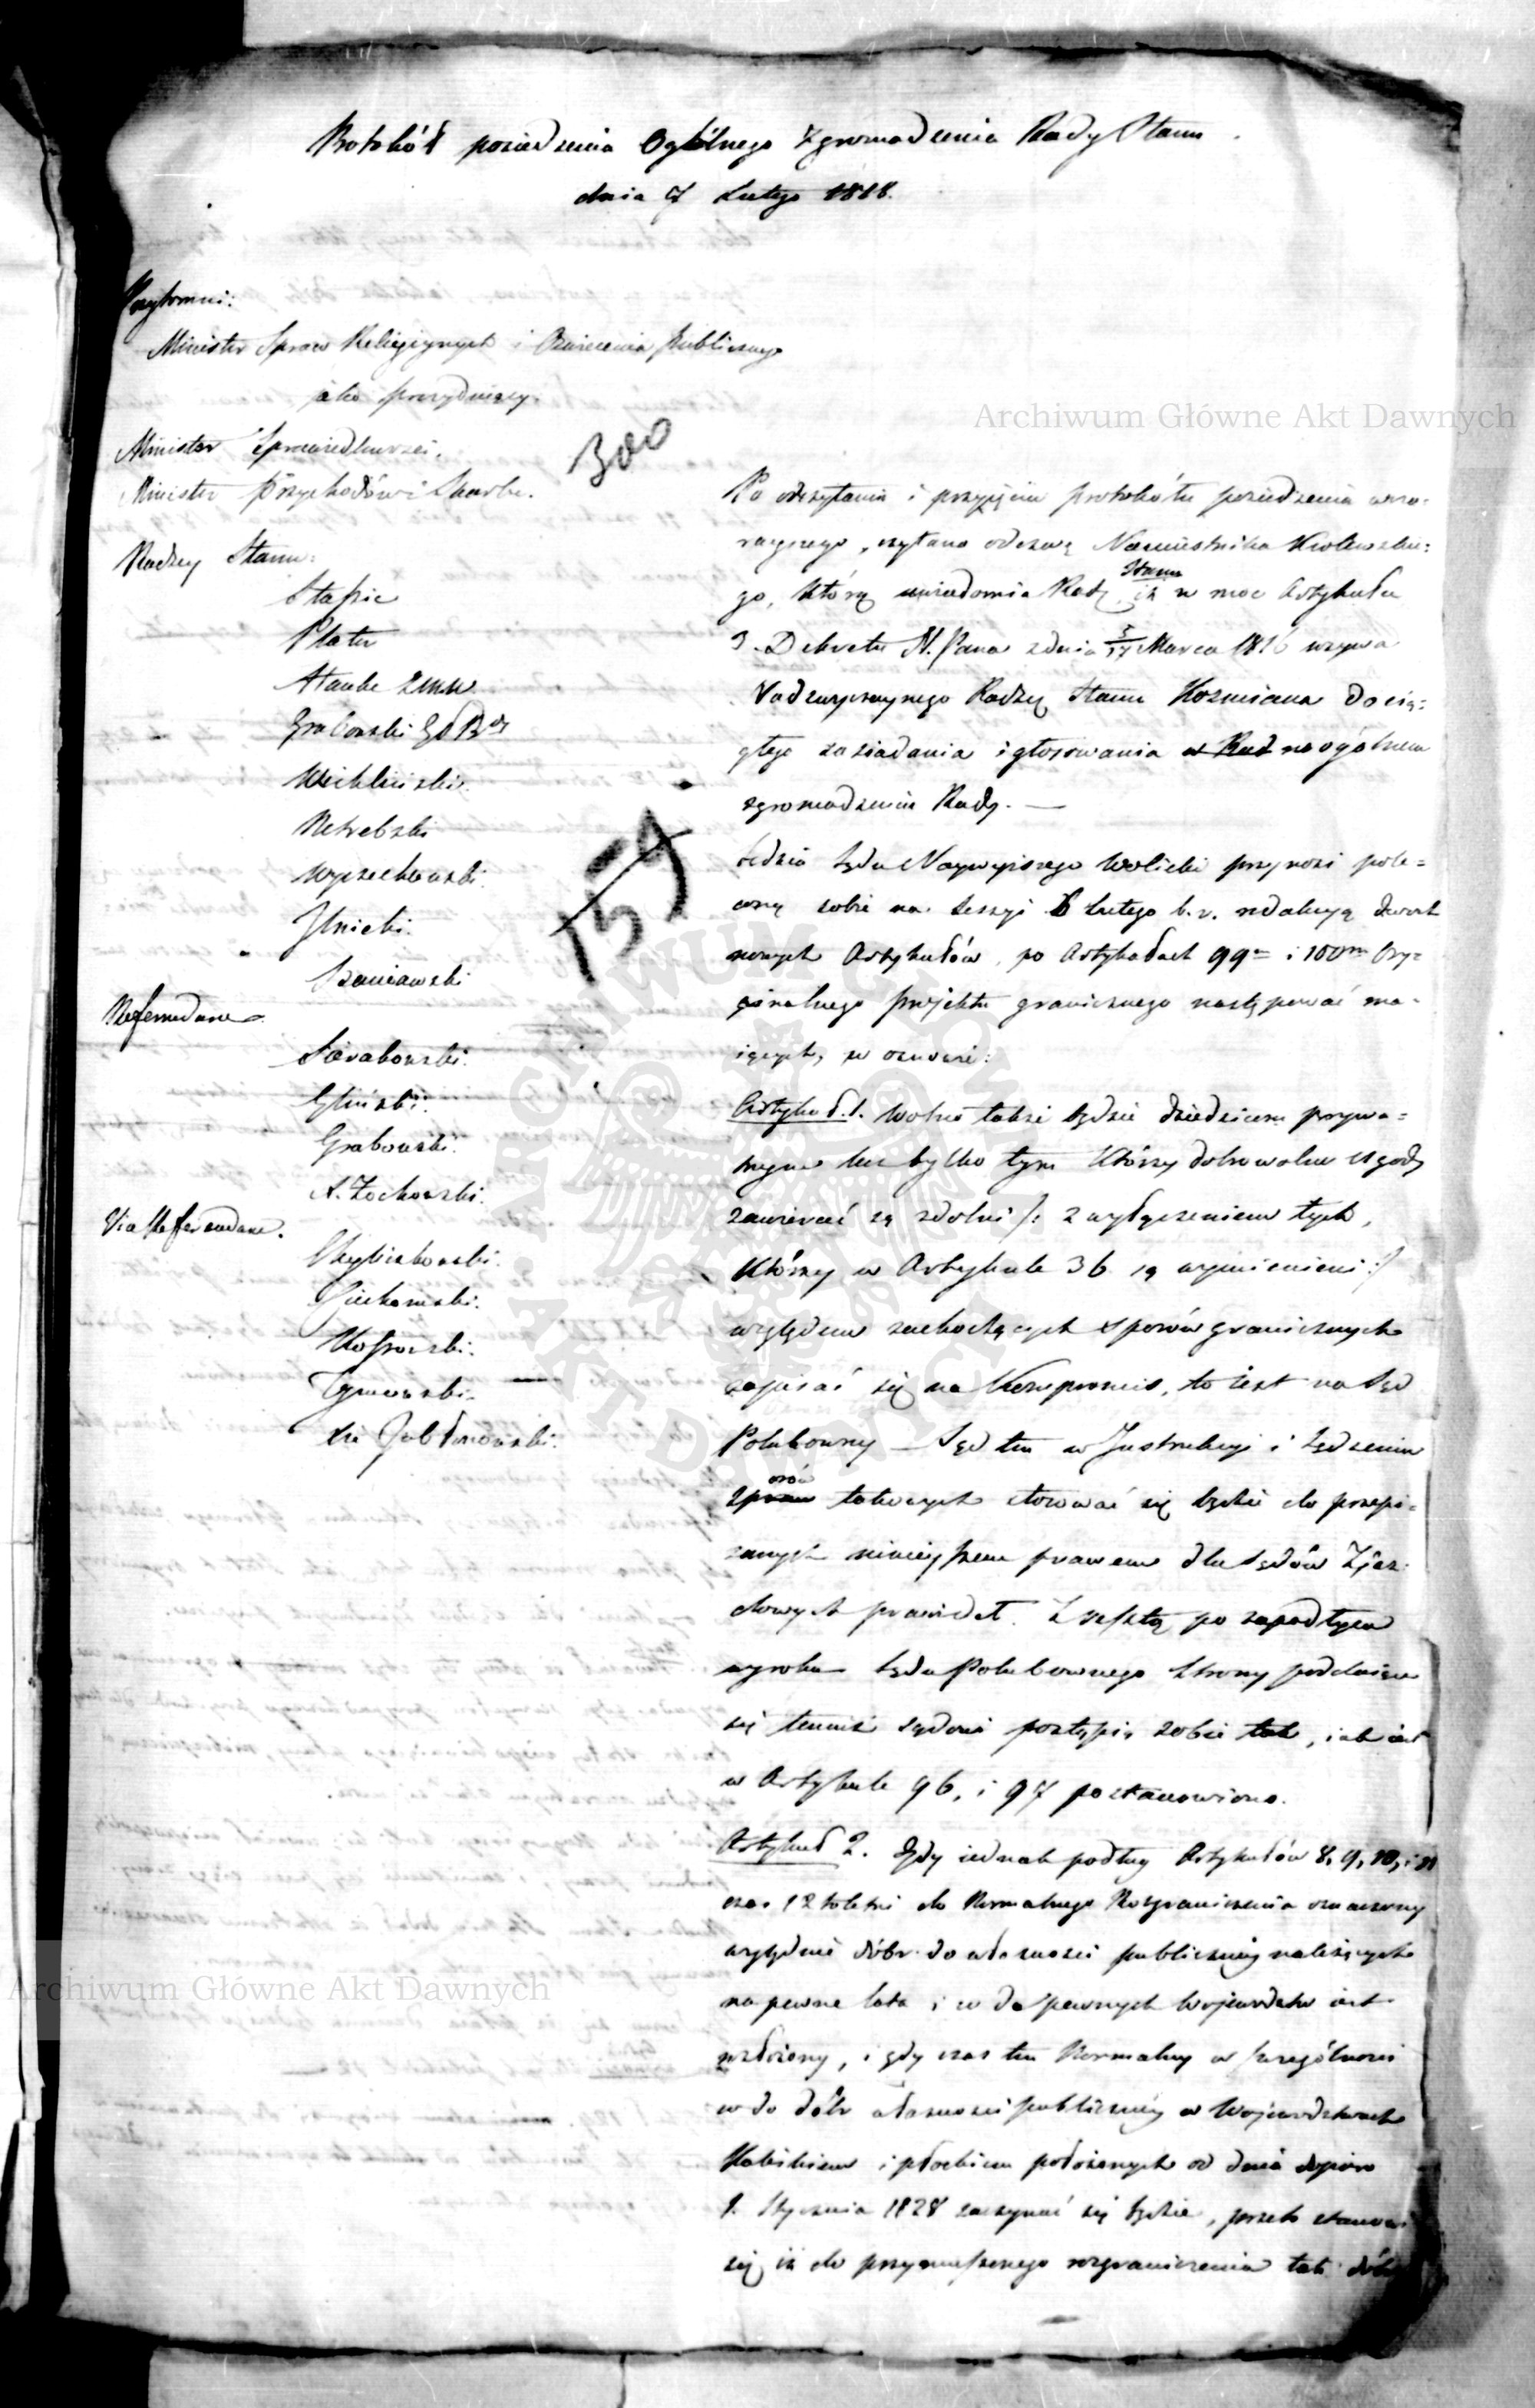 Protokół posiedzenia Ogólnego Zgromadzenia Rady Stanu
dnia 7 Lutego 1818.
Przytomni:
Minister Spraw Religijnych i Oświecenia Publicznego
jako prezydujący.
Minister Sprawiedliwości.
Minister Przychodów i Skarbu.
Radzcy Stanu:
Staszic
Plater
Grabowski
Wichliński
Netrebski
Wyczechowski
Jłnicki.
Szaniawski
Referendarze.
Sierakowski.
Gliński.
Grabowski.
A. Żochowski.
ViceReferendarze.
Okęcki
Tymowski.
Xże Jabłonowski.
300
159
Po odczytaniu i przyjęciu protokółu posiedzenia wczo-
rayszego, czytano odezwę Namiestnika Królewskie-
go, którą uwiadomia Radę Stanu iż w moc Artykułu
3. Dekretu N. Pana z dnia 5/17 Marca 1816 wzywa
Nadzwyczaynego Radzcę Stanu Kozmiana do cią-
głego zasiadania i głosowania w Rad na ogólnem
zgromadzeniu Rady. —
Sędzia Sądu Naywyższego Wolicki przynosi pole-
coną sobie na Sessyi 6 Lutego b. r. redakcyą dwóch
nowych Artykułów, po Artykułach 99m i 100m Ory-
ginalnego projektu granicznego następować ma-
iących, w osnowie:
Artykuł. 1. Wolno także będzie dziedzicom prywa-
tnym lecz tylko tym którzy dobrowolne ugody
zawierać są zdolni /: z wyłączeniem tych,
którzy w Artykule 36 są wymienieni :/
względem zachodzących sporów granicznych
zapisać się na Kompromis, to iest na Sąd
Polubowny — Sąd ten w Jnstrukcyi i Sądzeniu
sporów takowych stosować się będzie do przepi-
sanych ninieyszem prawem dla Sądów Zjaz-
dowych prawideł. Zresztą po zapadłym
wyroku Sądu Polubownego Strony poddaiące
się temuż sądowi postąpią sobie tak, iak iest
w Artykule 96, i 97 postanowiono.
Artykuł 2. Gdy iednak podług Artykułów 8, 9, 10, i 11
czas 12toletni do Normalnego Rozgraniczenia oznaczony
względnie dóbr do własności publiczney należących
na pewne lata i co do pewnych Województw iest
rozłożony, i gdy czas ten Normalny w szczególności
co do dóbr własności publiczney w Województwach
Kaliskiem i płockiem położonych od dnia dopiero
1. Stycznia 1828 zaczynać się będzie, przeto stanowi
się iż do przymuszonego rozgraniczenia tak dóbr